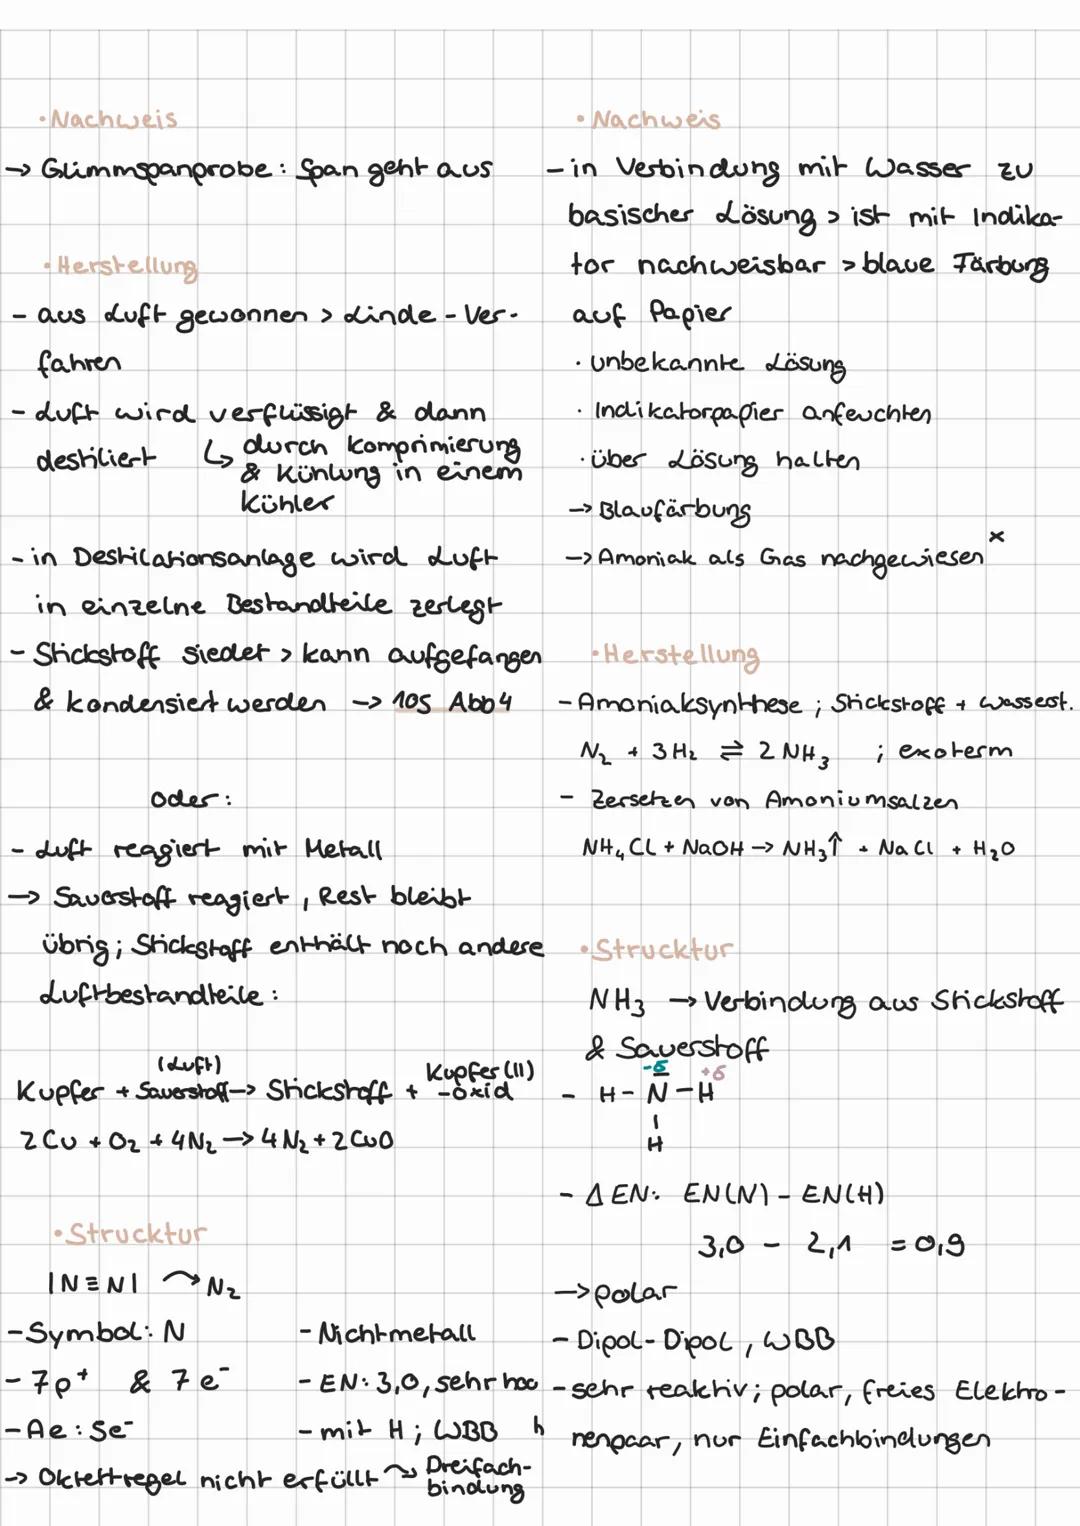 •Nachweis
→ Glimmspanprobe: Span geht aus
•Herstellung
- aus Luft gewonnen > Linde-Ver-
fahren
- Luft wird verflüssigt & dann
destiliert ↳ durch Komprimierung
& Kühlung in einem
Kühler
- in Destilationsanlage wird Luft
in einzelne Bestandteile zerlegt
- Stickstoff siedet > kann aufgefangen
& kondensiert werden → 105 Abb4
oder:
- Luft reagiert mit Metall
→ Sauerstoff reagiert, Rest bleibt
übrig; Stickstoff enthält noch andere
Luftbestandteile:
(Luft)
Kupfer + Sauerstoff → Stickstoff + Kupfer(II)
-oxid
2Cu + O₂ + 4N₂ → 4N₂ + 2CuO
•Strucktur
|N≡N| ↷ N₂
- Symbol: N
- 7p⁺ & 7e⁻
- Ae: 5e⁻
- Nichtmetall
- EN: 3,0, sehr hoc
h
- mit H; WBB
→ Oktettregel nicht erfüllt ↝ Dreifach-
bindung
•Nachweis
- in Verbindung mit Wasser zu
basischer Lösung > ist mit Indika-
tor nachweisbar > blaue Färbung
auf Papier
· unbekannte Lösung
· Indikatorpapier anfeuchten
· über Lösung halten
→ Blaufärbung
→ Amoniak als Gas nachgewiesen ˣ
•Herstellung
- Amoniaksynthese; Stickstoff + Wasserst.
N₂ + 3H₂ ⇌ 2NH₃ ; exoterm
- Zersetzen von Amoniumsalzen
NH₄Cl + NaOH → NH₃↑ + NaCl + H₂O
•Strucktur
NH₃ → Verbindung aus Stickstoff
& Sauerstoff
-δ +δ
- H-N-H
|
H
- ΔEN: EN(N) - EN(H)
3,0 - 2,1 = 0,9
→ polar
- Dipol-Dipol, WBB
- sehr reaktiv; polar, freies Elektro-
nenpaar, nur Einfachbindungen